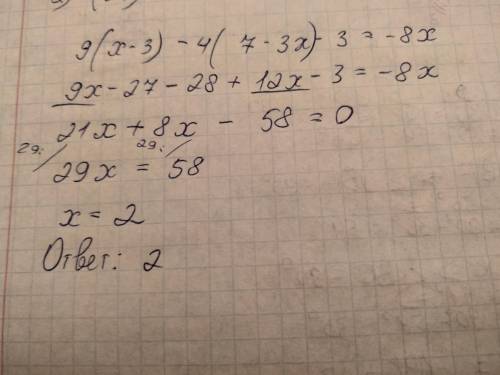 9(x-3) - 4(7-3x) - 3 = -8x
9x - 27 - 28 + 12x - 3 = -8x
21x + 8x - 58 = 0
29: / 29: /
29x = 58
x = 2
Ответ: 2